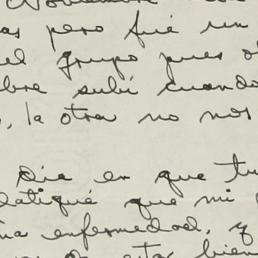 Noviembre
as pero fué un
el grupo pues
bre subí cuando
, la otra no nos
Dia en que tu
latiqué que mi
na enfermedad, y
estar bien